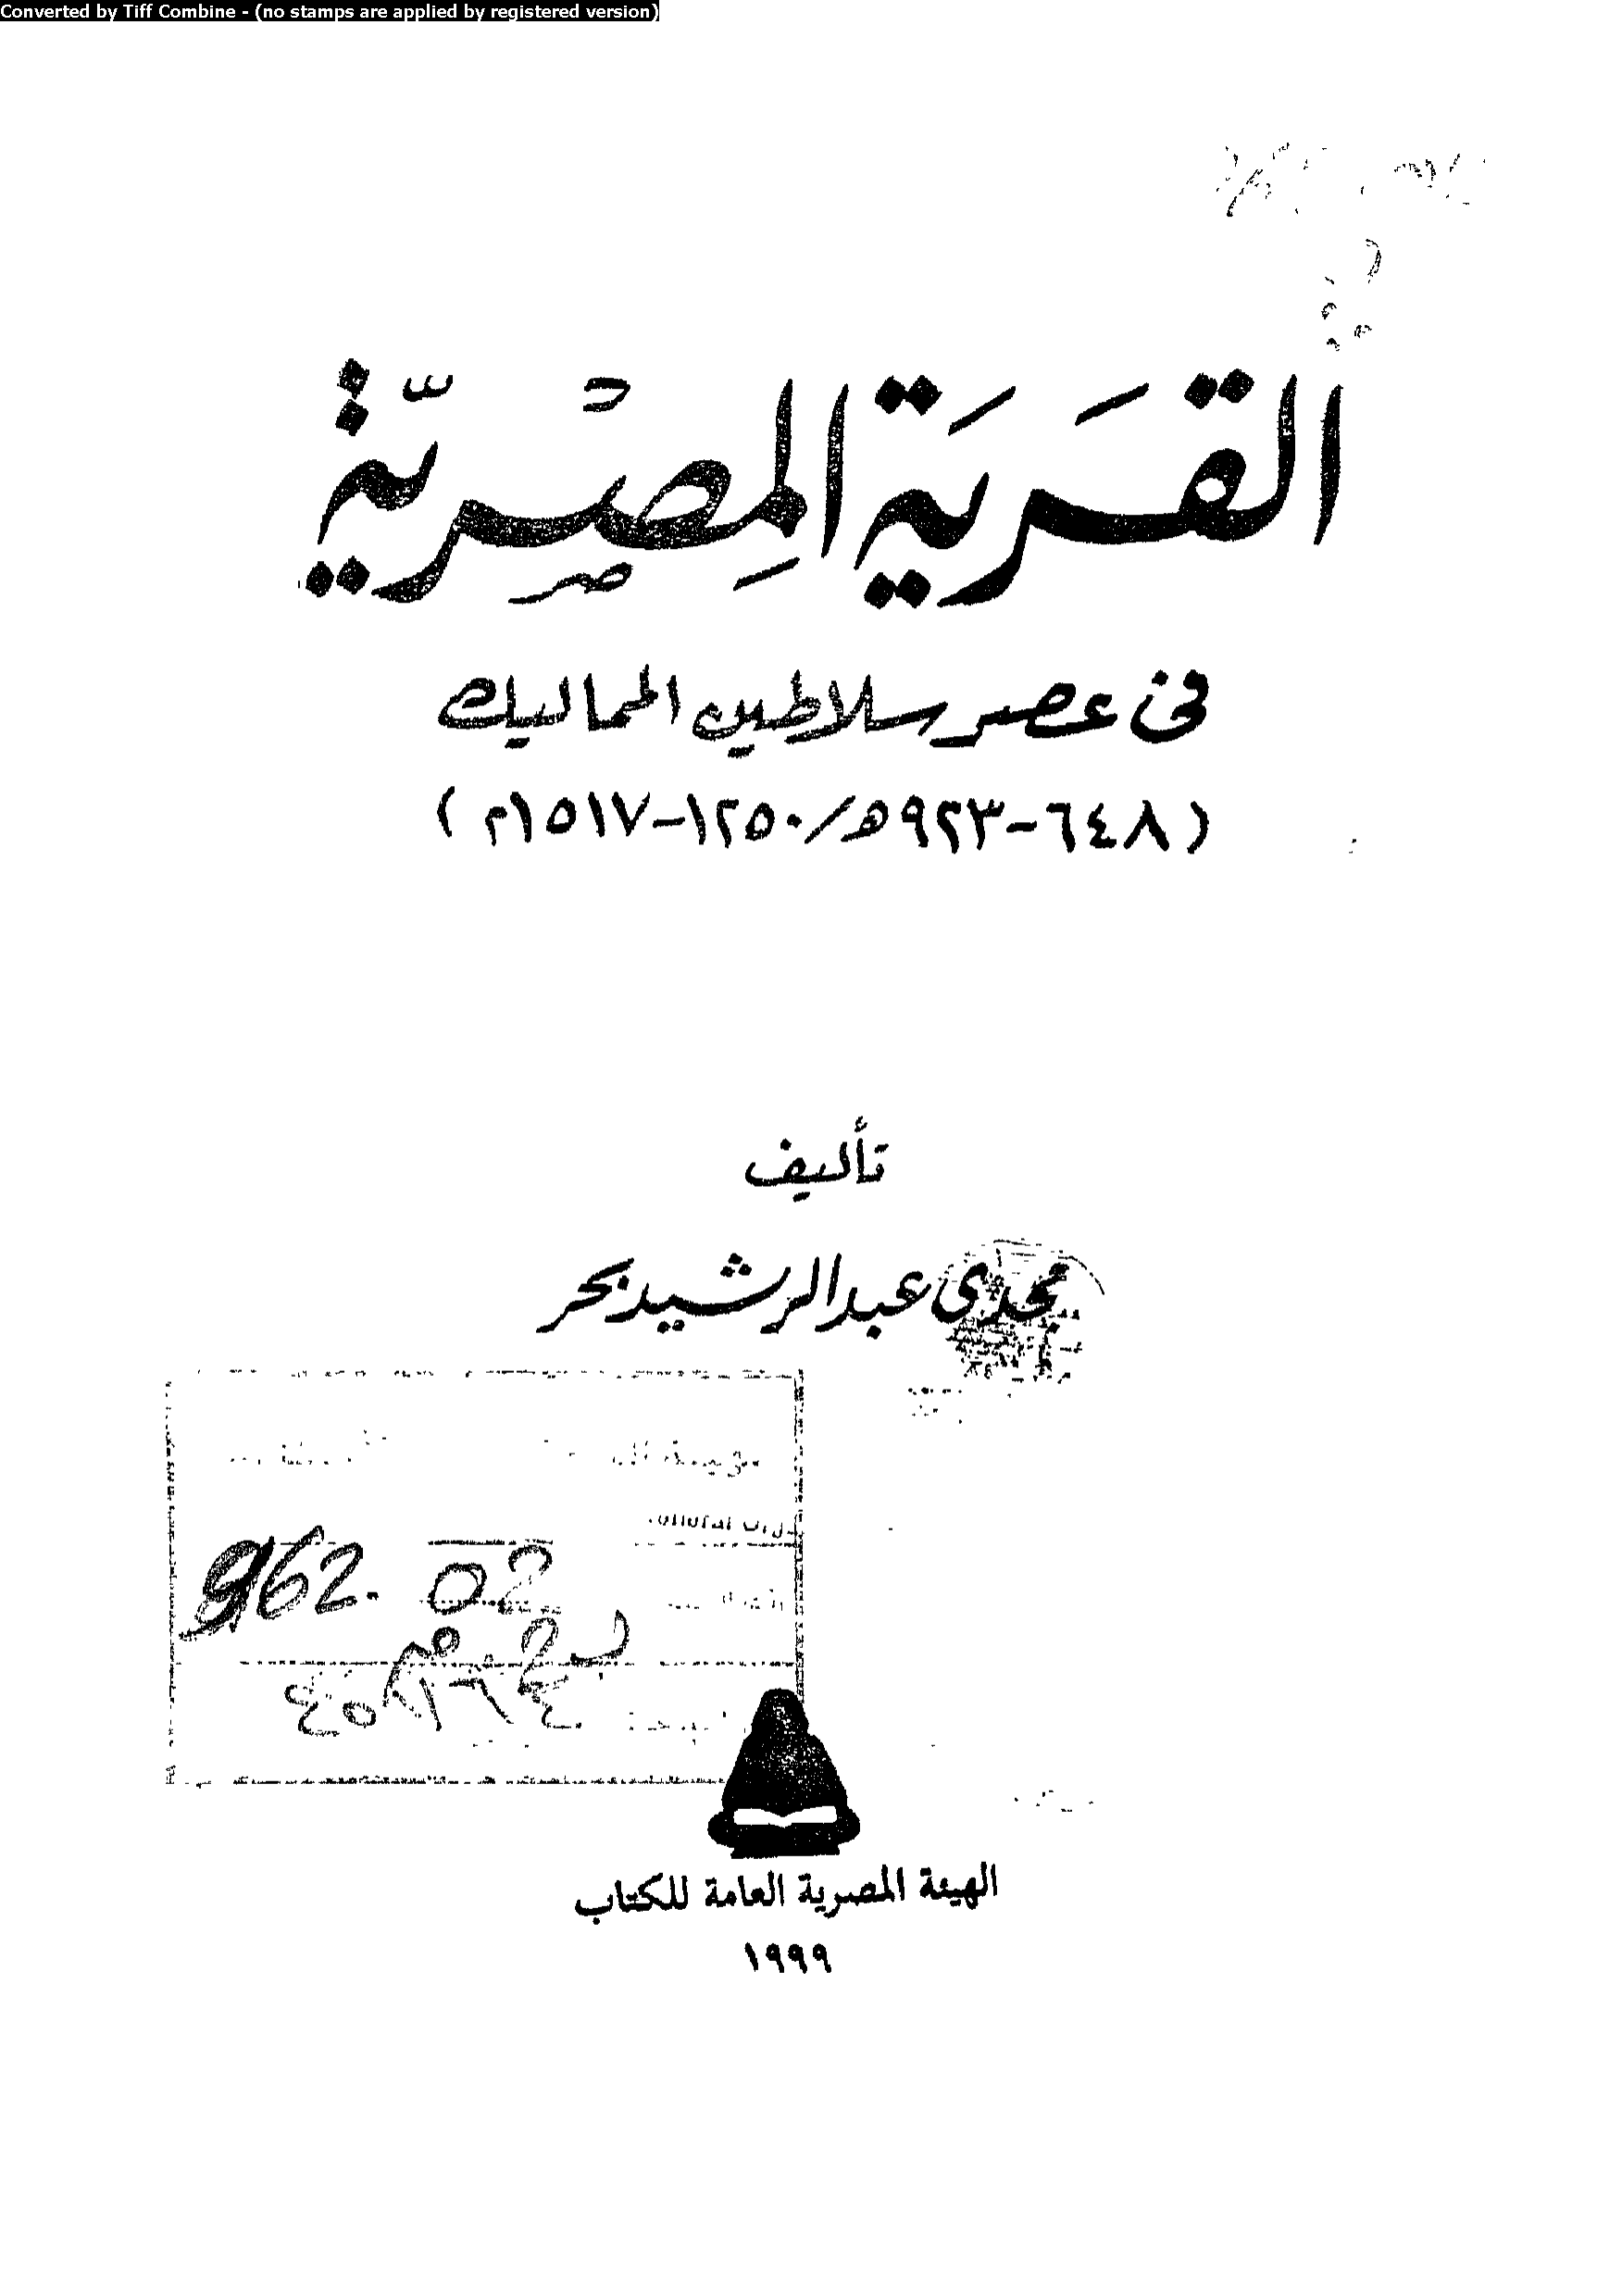 Converted by Tiff Combine - (no stamps are applied by registered version)
القَرَيَة المِصْرِيّة
فى عصر سلاطين المماليك
(٦٤٨-٩٢٣ھ/١٢٥٠-١٥١٧م)
تأليف
مجدى عبد الرشيد بحر
962.02
الهيئة المصرية العامة للكتاب
١٩٩٩